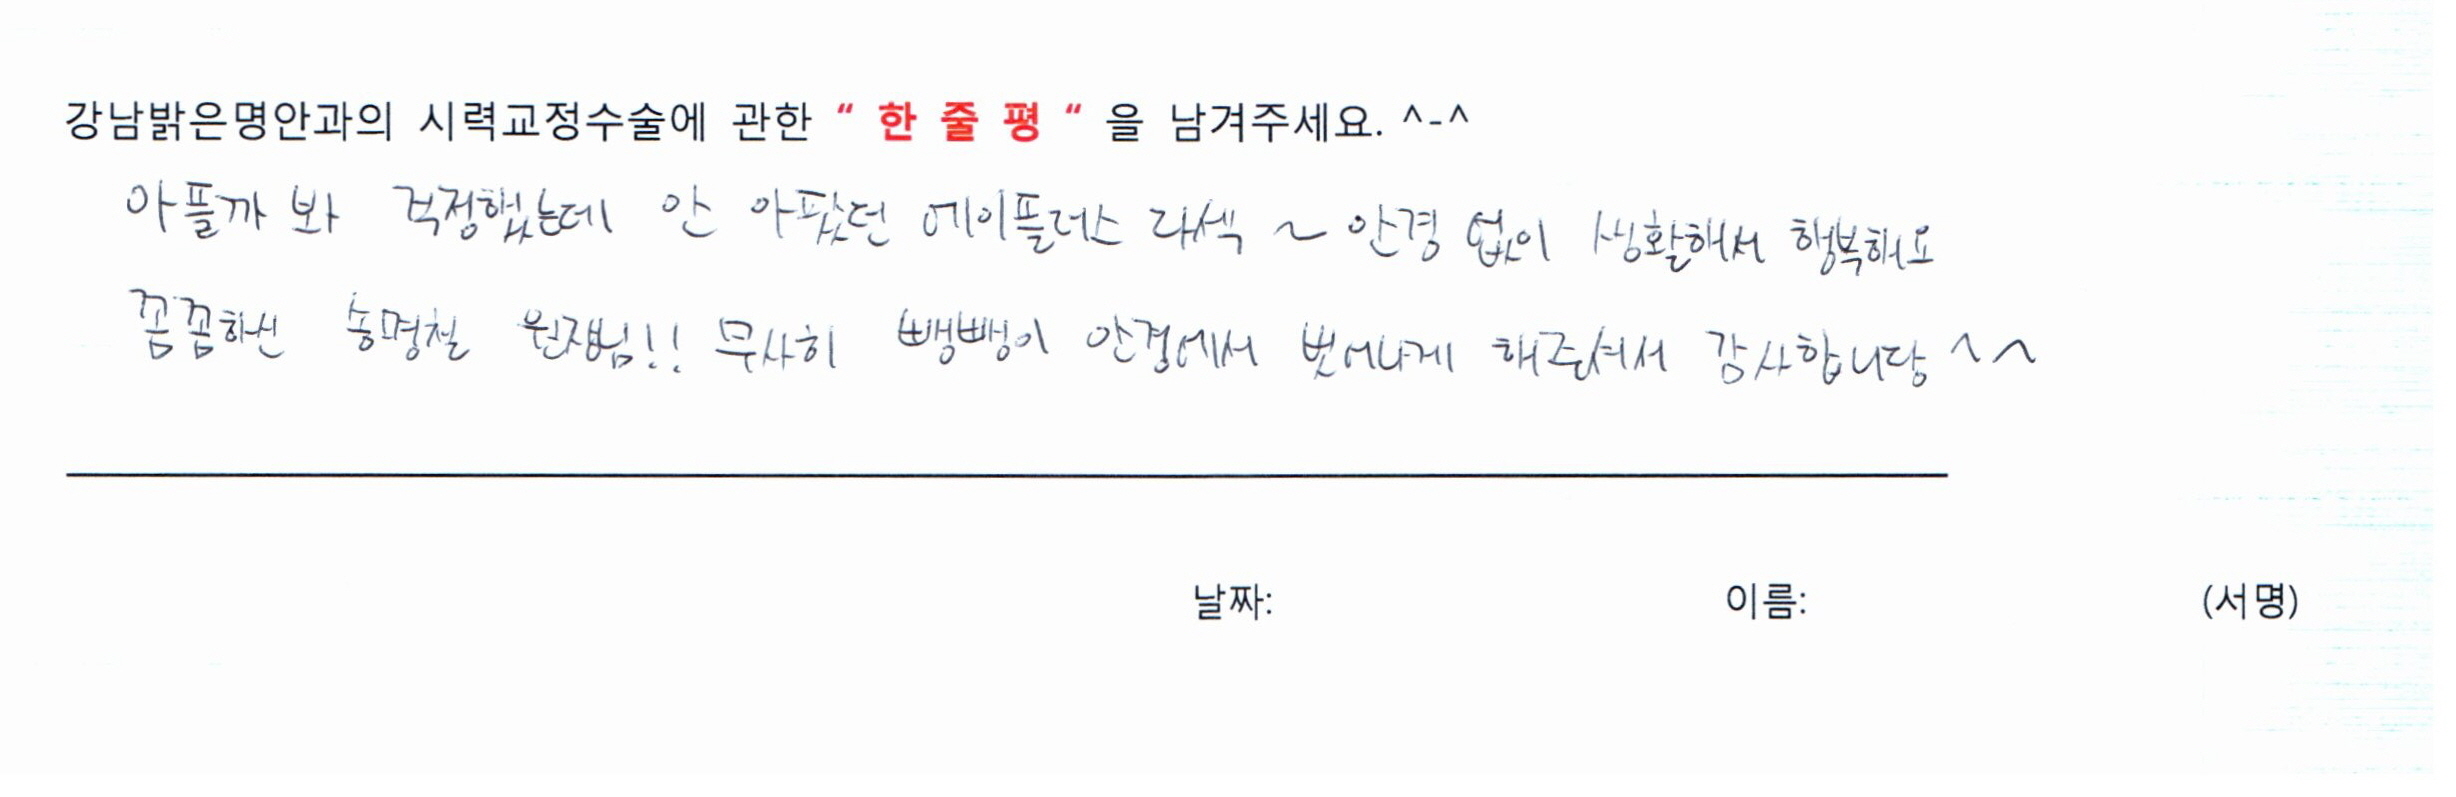 강남밝은명안과의 시력교정수술에 관한 “ 한 줄 평 “ 을 남겨주세요. ^-^
아플까 봐 걱정했는데 안 아팠던 에이플러스 라섹 ~ 안경 없이 생활해서 행복해요
꼼꼼하신 송명철 원장님!! 무사히 뺑뺑이 안경에서 벗어나게 해주셔서 감사합니당 ^^
날짜: 이름: (서명)